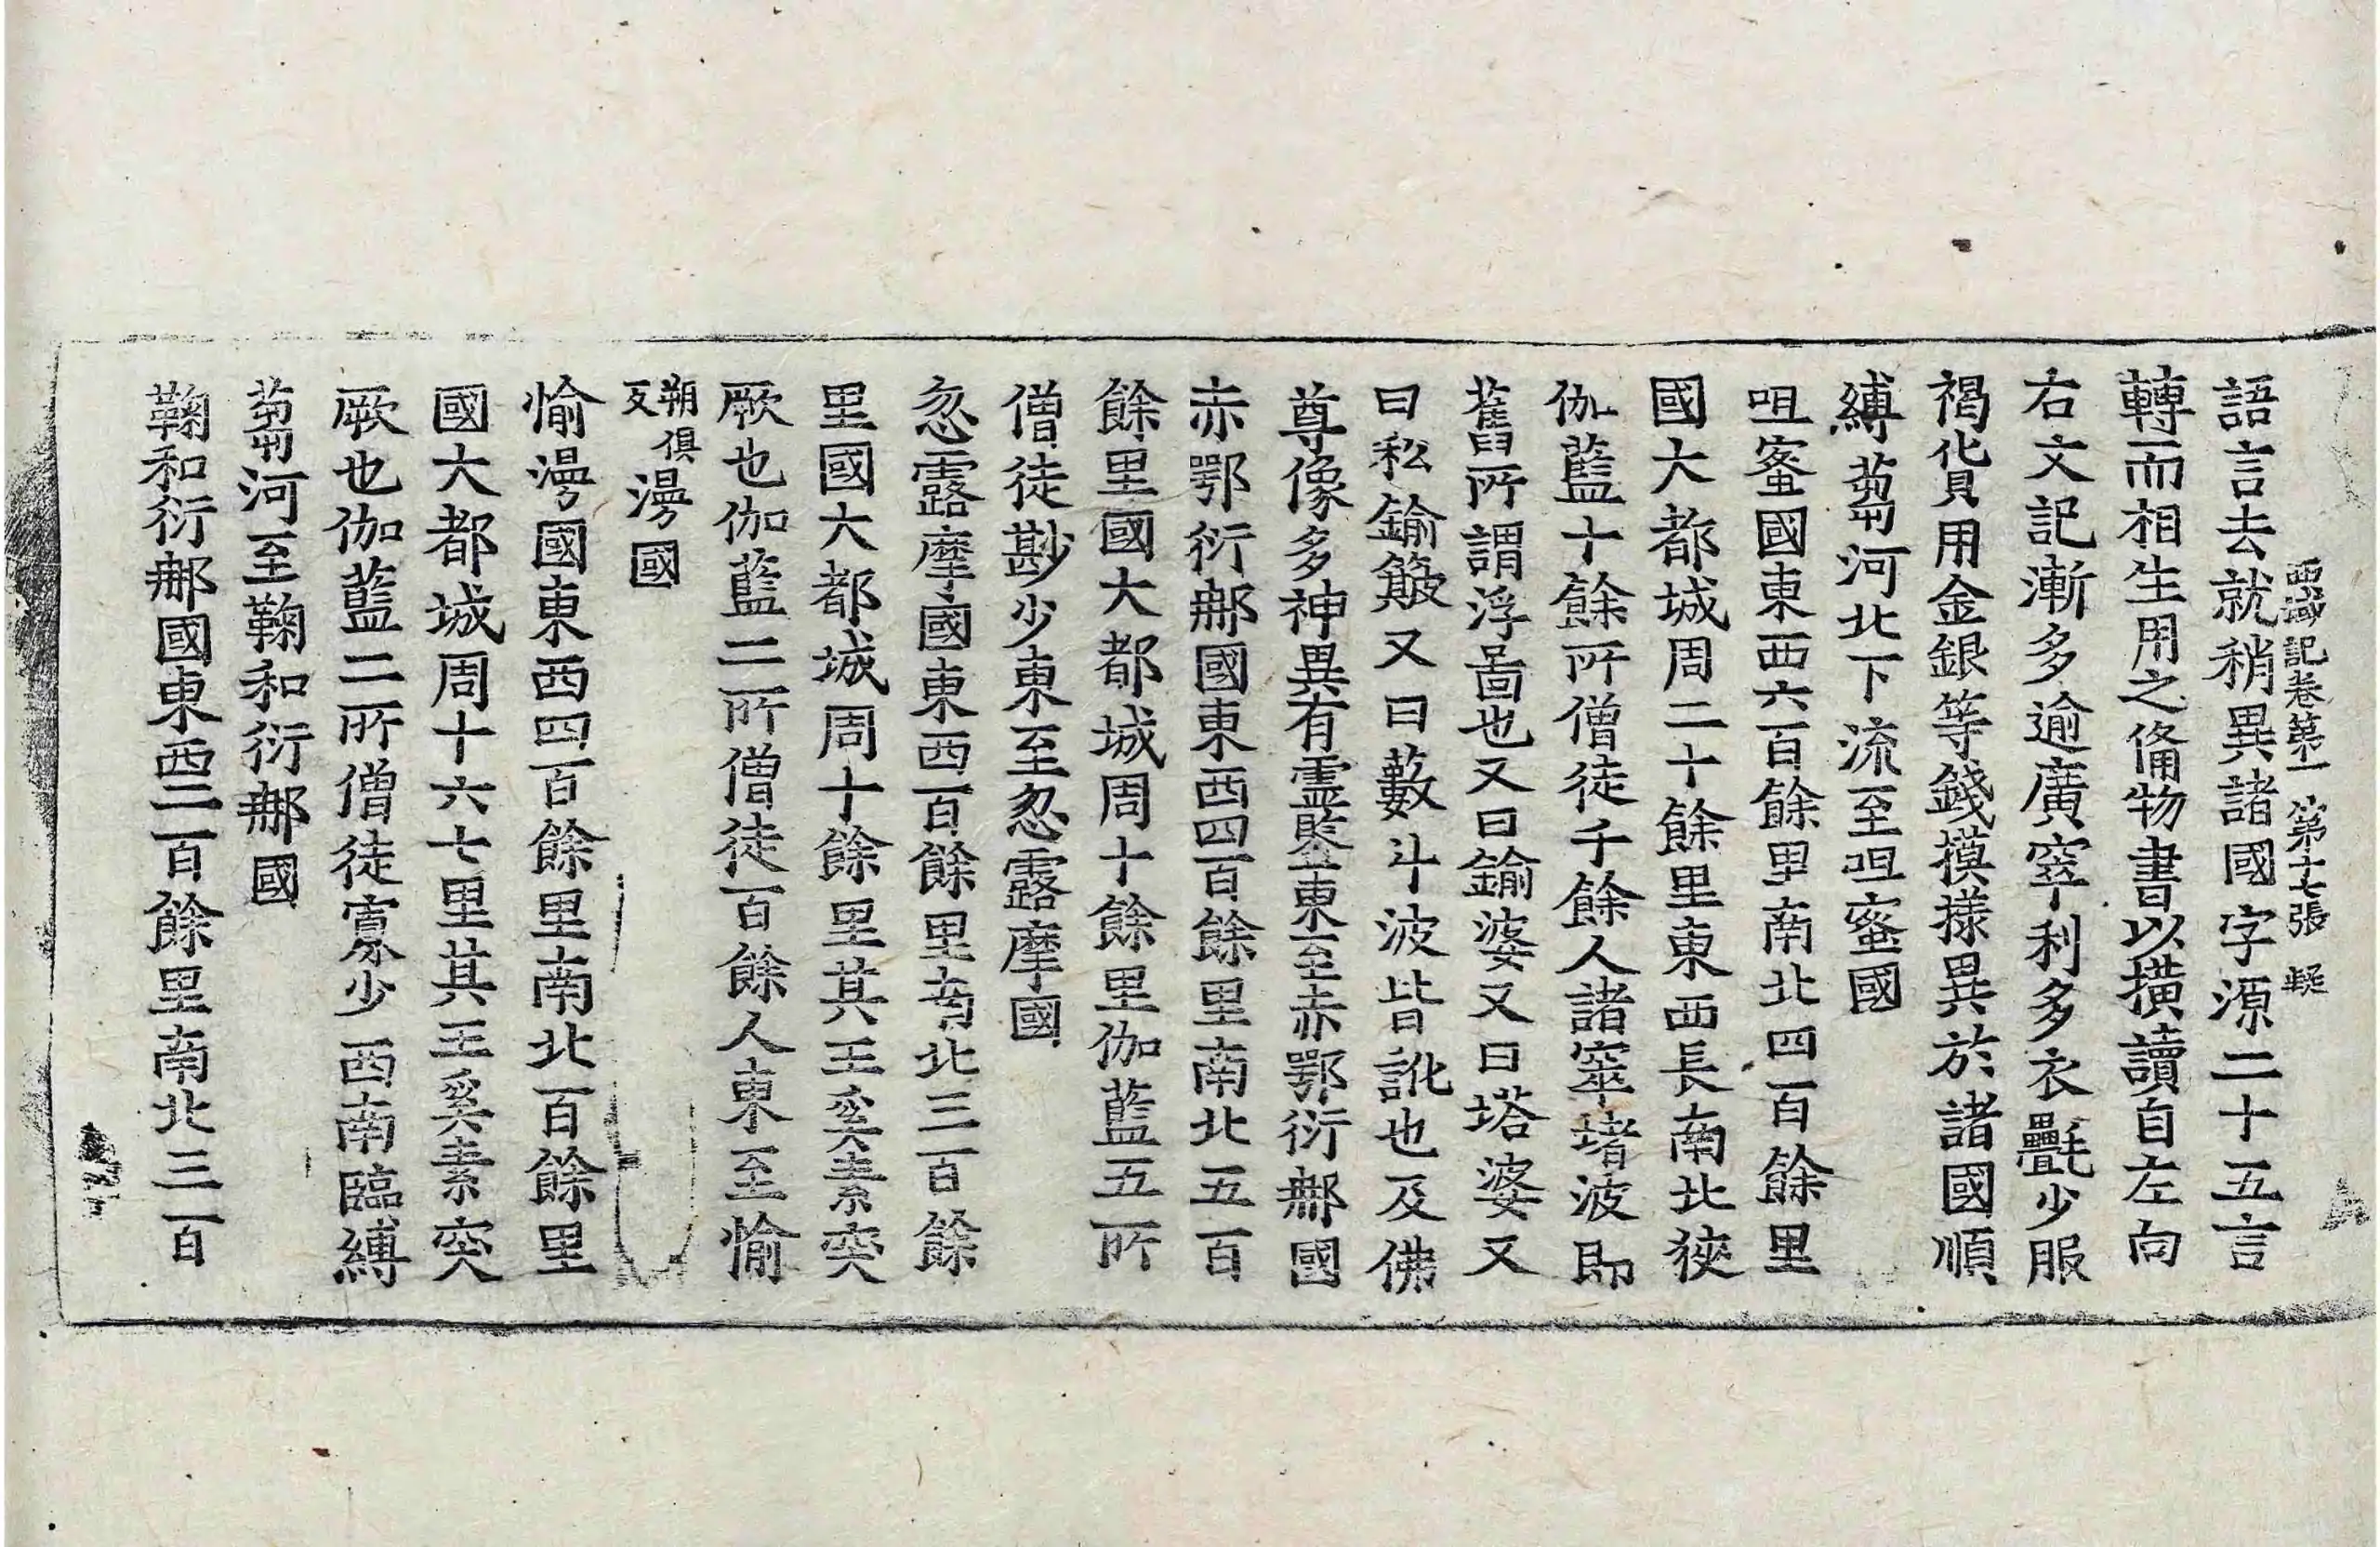 西域記卷第一 第十七張 疑
語言去就稍異諸國字源二十五言
轉而相生用之俻物書以撗讀自左向
右文記漸多逾廣窣利多衣㲲少服
褐貨用金銀等錢摸㨾異於諸國順
縛蒭河北下流至呾蜜國
呾蜜國東西六百餘里南北四百餘里
國大都城周二十餘里東西長南北狹
伽藍十餘所僧徒千餘人諸窣堵波即
舊所謂浮啚也又曰鍮婆又曰塔婆又
曰私鍮簸又曰藪斗波皆訛也及佛
尊像多神異有靈鑒東至赤鄂衍那國
赤鄂衍那國東西四百餘里南北五百
餘里國大都城周十餘里伽藍五所
僧徒尠少東至忽露摩國
忽露摩國東西百餘里南北三百餘
里國大都城周十餘里其王奚素突
厥也伽藍二所僧徒百餘人東至愉
朔俱反漫國
愉漫國東西四百餘里南北百餘里
國大都城周十六七里其王奚素突
厥也伽藍二所僧徒寡少西南臨縛
蒭河至鞠和衍那國
鞠和衍那國東西二百餘里南北三百